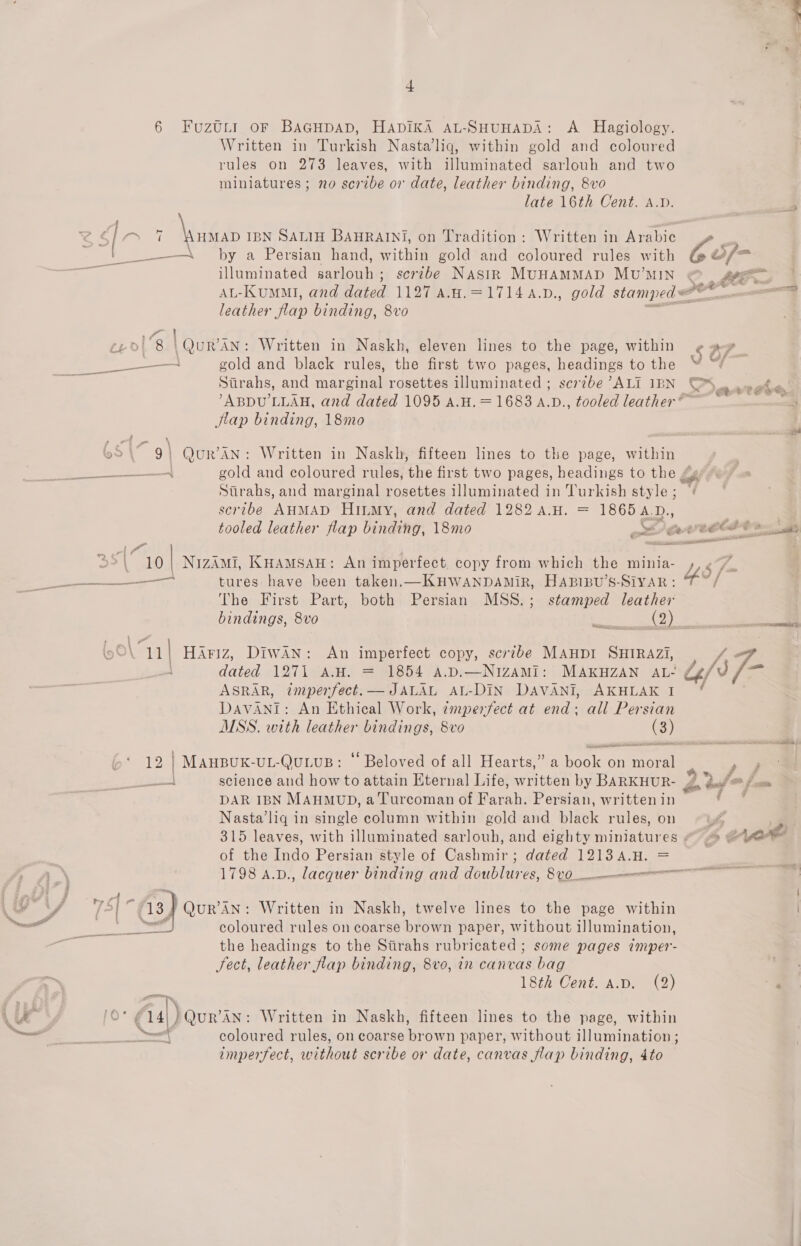 4
6 FUZŪLI OF BAGHDAD, HADĪKĀ AL-SHUHADĀ: A Hagiology.
Written in Turkish Nasta'liq, within gold and coloured
rules on 273 leaves, with illuminated sarlouh and two
miniatures; no scribe or date, leather binding, 8vo
late 16th Cent. A.D.
7 AHMAD IBN SALIH BAHRAINĪ, on Tradition: Written in Arabic
by a Persian hand, within gold and coloured rules with
illuminated sarlouh; scribe NASIR MUHAMMAD MU'MIN
AL-KUMMI, and dated 1127 A.H. = 1714 A.D., gold stamped
leather flap binding, 8vo
8 QUR'ĀN: Written in Naskh, eleven lines to the page, within
gold and black rules, the first two pages, headings to the
Sūrahs, and marginal rosettes illuminated; scribe 'ALĪ IBN
'ABDU'LLAH, and dated 1095 A.H. = 1683 A.D., tooled leather
flap binding, 18mo
65 9 QUR'ĀN: Written in Naskh, fifteen lines to the page, within
gold and coloured rules, the first two pages, headings to the
Sūrahs, and marginal rosettes illuminated in Turkish style;
scribe AHMAD HILMY, and dated 1282 A.H. = 1865 A.D.,
tooled leather flap binding, 18mo
35 10 NIZĀMĪ, KHAMSAH: An imperfect copy from which the minia-
tures have been taken.—KHWANDAMĪR, HABIBU'S-SIYAR:
The First Part, both Persian MSS.; stamped leather
bindings, 8vo (2)
60 11 HĀFIZ, DĪWĀN: An imperfect copy, scribe MAHDI SHIRAZI,
dated 1271 A.H. = 1854 A.D.—NIZAMĪ: MAKHZAN AL-
ASRĀR, imperfect.—JALĀL AL-DĪN DAVĀNĪ, AKHLAK I
DAVĀNĪ: An Ethical Work, imperfect at end; all Persian
MSS. with leather bindings, 8vo (3)
12 MAHBUK-UL-QULUB: "Beloved of all Hearts," a book on moral
science and how to attain Eternal Life, written by BARKHUR-
DAR IBN MAHMUD, a Turcoman of Farah. Persian, written in
Nasta'liq in single column within gold and black rules, on
315 leaves, with illuminated sarlouh, and eighty miniatures
of the Indo Persian style of Cashmir; dated 1213 A.H. =
1798 A.D., lacquer binding and doublures, 8vo
75 13 QUR'ĀN: Written in Naskh, twelve lines to the page within
coloured rules on coarse brown paper, without illumination,
the headings to the Sūrahs rubricated; some pages imper-
fect, leather flap binding, 8vo, in canvas bag
18th Cent. A.D. (2)
10 14 QUR'ĀN: Written in Naskh, fifteen lines to the page, within
coloured rules, on coarse brown paper, without illumination;
imperfect, without scribe or date, canvas flap binding, 4to